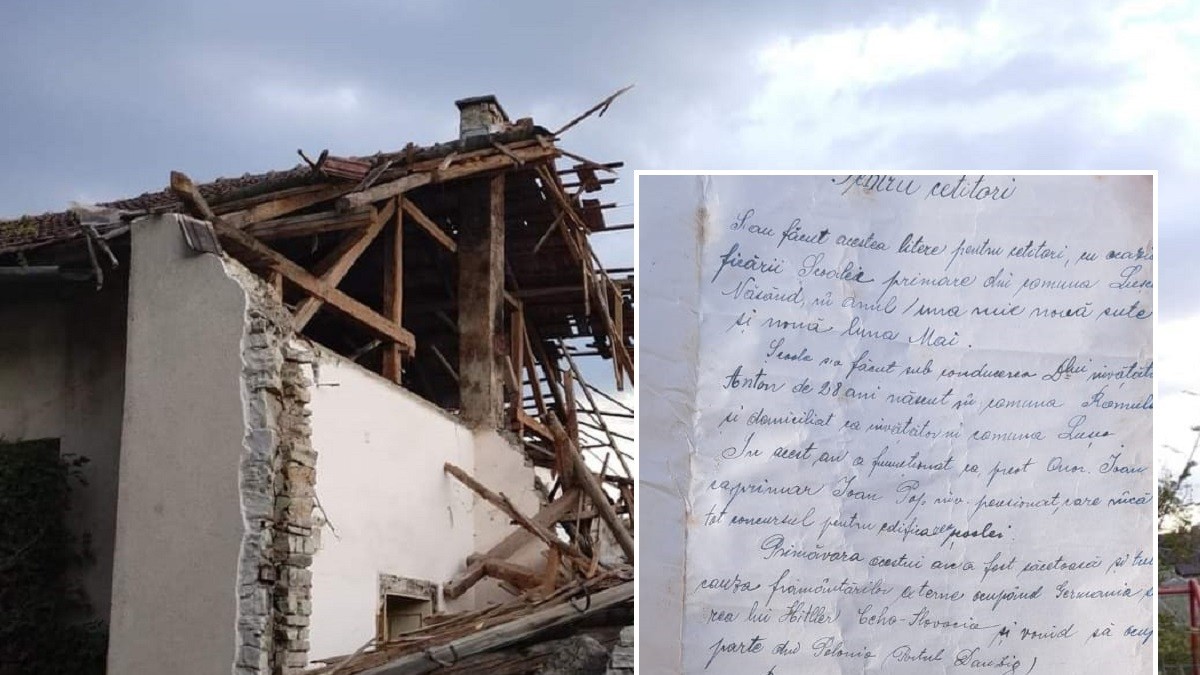 Pentru cetitori
S'au făcut acestea litere pentru cetitori, cu ocazi
ficării Școalei primare din comuna Lușc
Năsăud, în anul una mie nouă sute
și nouă luna Mai.
Școala s'a făcut sub conducerea Dlui învățăt
Anton de 28 ani născut în comuna Romul
și domiciliat ca învățător în comuna Lușca
In acest an a funcționat ca preot Onor. Ioan
ca primar Ioan Pop inv. pensionat, care
tot concursul pentru edificarea școlei.
Primăvara acestui an a fost săcetoasă și
cauza frământărilor externe ocupând Germania
rea lui Hitller Ceho-Slovacia și voind să ocup
parte din Polonia Portul Danzig)